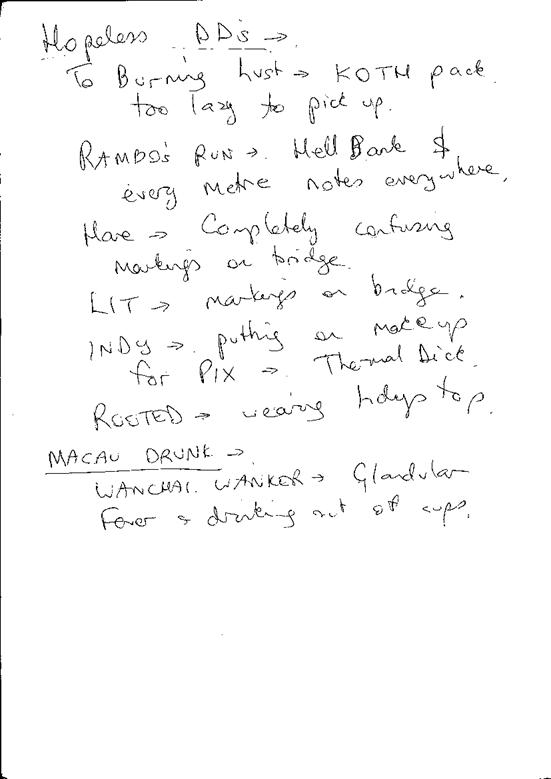 Hopeless DD's →
To Burning Lust → KOTH pack
too lazy to pick up.
RAMBO's RUN → Hell Bank $
every metre notes everywhere.
Hare → Completely confusing
markings on bridge.
LIT → markings on bridge.
INDY → putting on make up
for PIX → Thermal Dick.
ROOTED → wearing ladys top.
MACAU DRUNK →
WANCHAI WANKER → Glandular
Fever & drinking out of cups.